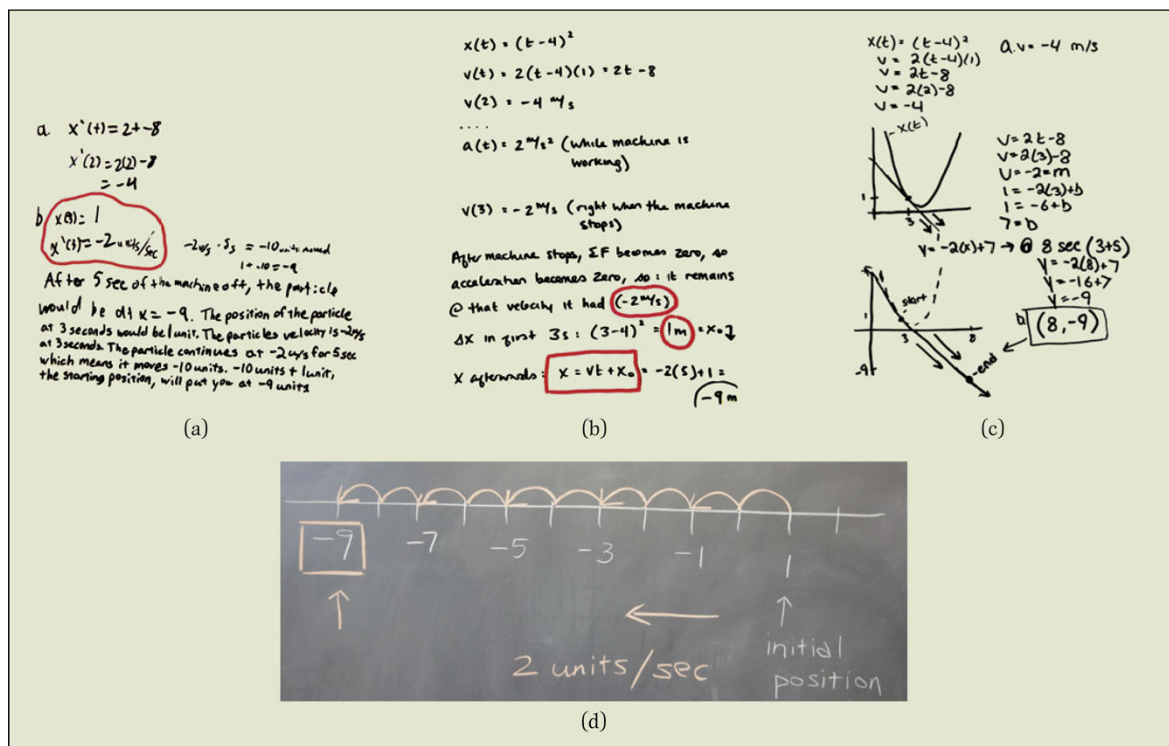 a. x'(t) = 2t-8
x'(2) = 2(2)-8
= -4
b. x(3) = 1
x'(3) = -2 units/sec
-2 u/s · 5s = -10 units moved
1 + -10 = -9
After 5 sec of the machine off, the particle
would be at x = -9. The position of the particle
at 3 seconds would be 1 unit. The particles velocity is -2 u/s
at 3 seconds. The particle continues at -2 u/s for 5 sec
which means it moves -10 units. -10 units + 1 unit,
the starting position, will put you at -9 units
(a)
x(t) = (t-4)²
v(t) = 2(t-4)(1) = 2t-8
v(2) = -4 m/s
....
a(t) = 2 m/s² (while machine is
working)
v(3) = -2 m/s (right when the machine
stops)
After machine stops, ΣF becomes zero, so
acceleration becomes zero, so: it remains
@ that velocity it had (-2 m/s)
Δx in first 3s: (3-4)² = 1m = x₀
x afterwards: x = vt + x₀ = -2(5)+1 =
-9m
(b)
x(t) = (t-4)²
v = 2(t-4)(1)
v = 2t-8
v = 2(2)-8
v = -4
a. v = -4 m/s
x(t)
1
3
v = 2t-8
v = 2(3)-8
v = -2 = m
1 = -2(3)+b
1 = -6+b
7 = b
y = -2(x)+7 → @ 8 sec (3+5)
y = -2(8)+7
y = -16+7
y = -9
b) (8,-9)
start
1
3
8
-9
end
(c)
-9 -7 -5 -3 -1 1
2 units/sec
initial
position
(d)